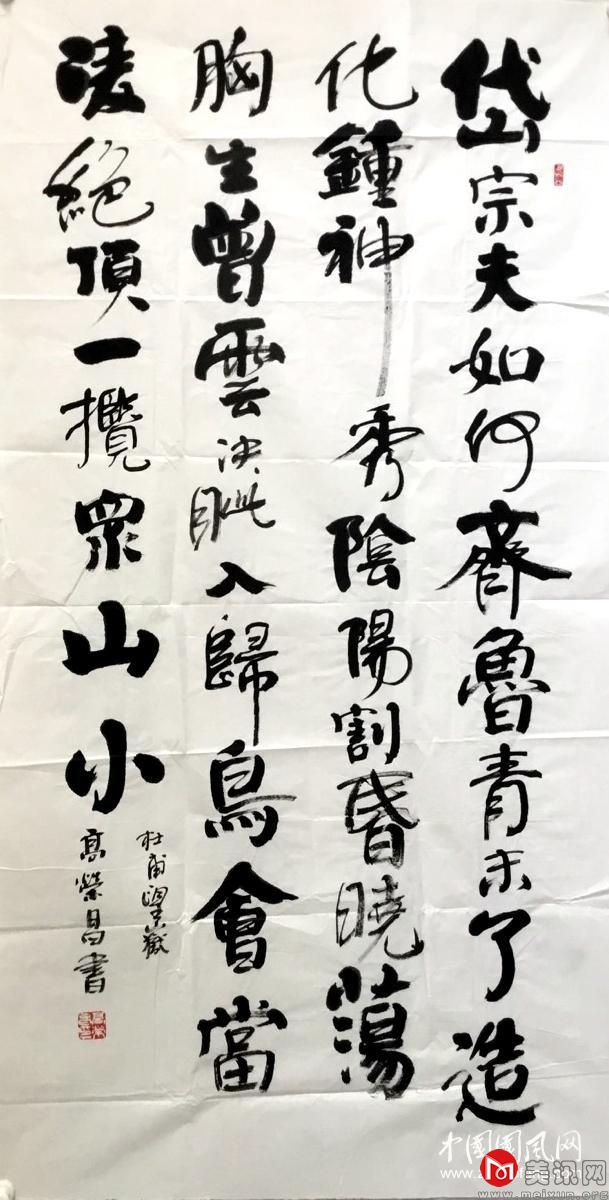 岱宗夫如何齊魯青未了造
化鍾神秀陰陽割昏曉蕩
胸生曾雲決眦入歸鳥會當
凌絕頂一攬眾山小
杜甫望岳
高榮昌書
中國國風网
www.z
美讯网
www.meixun.org